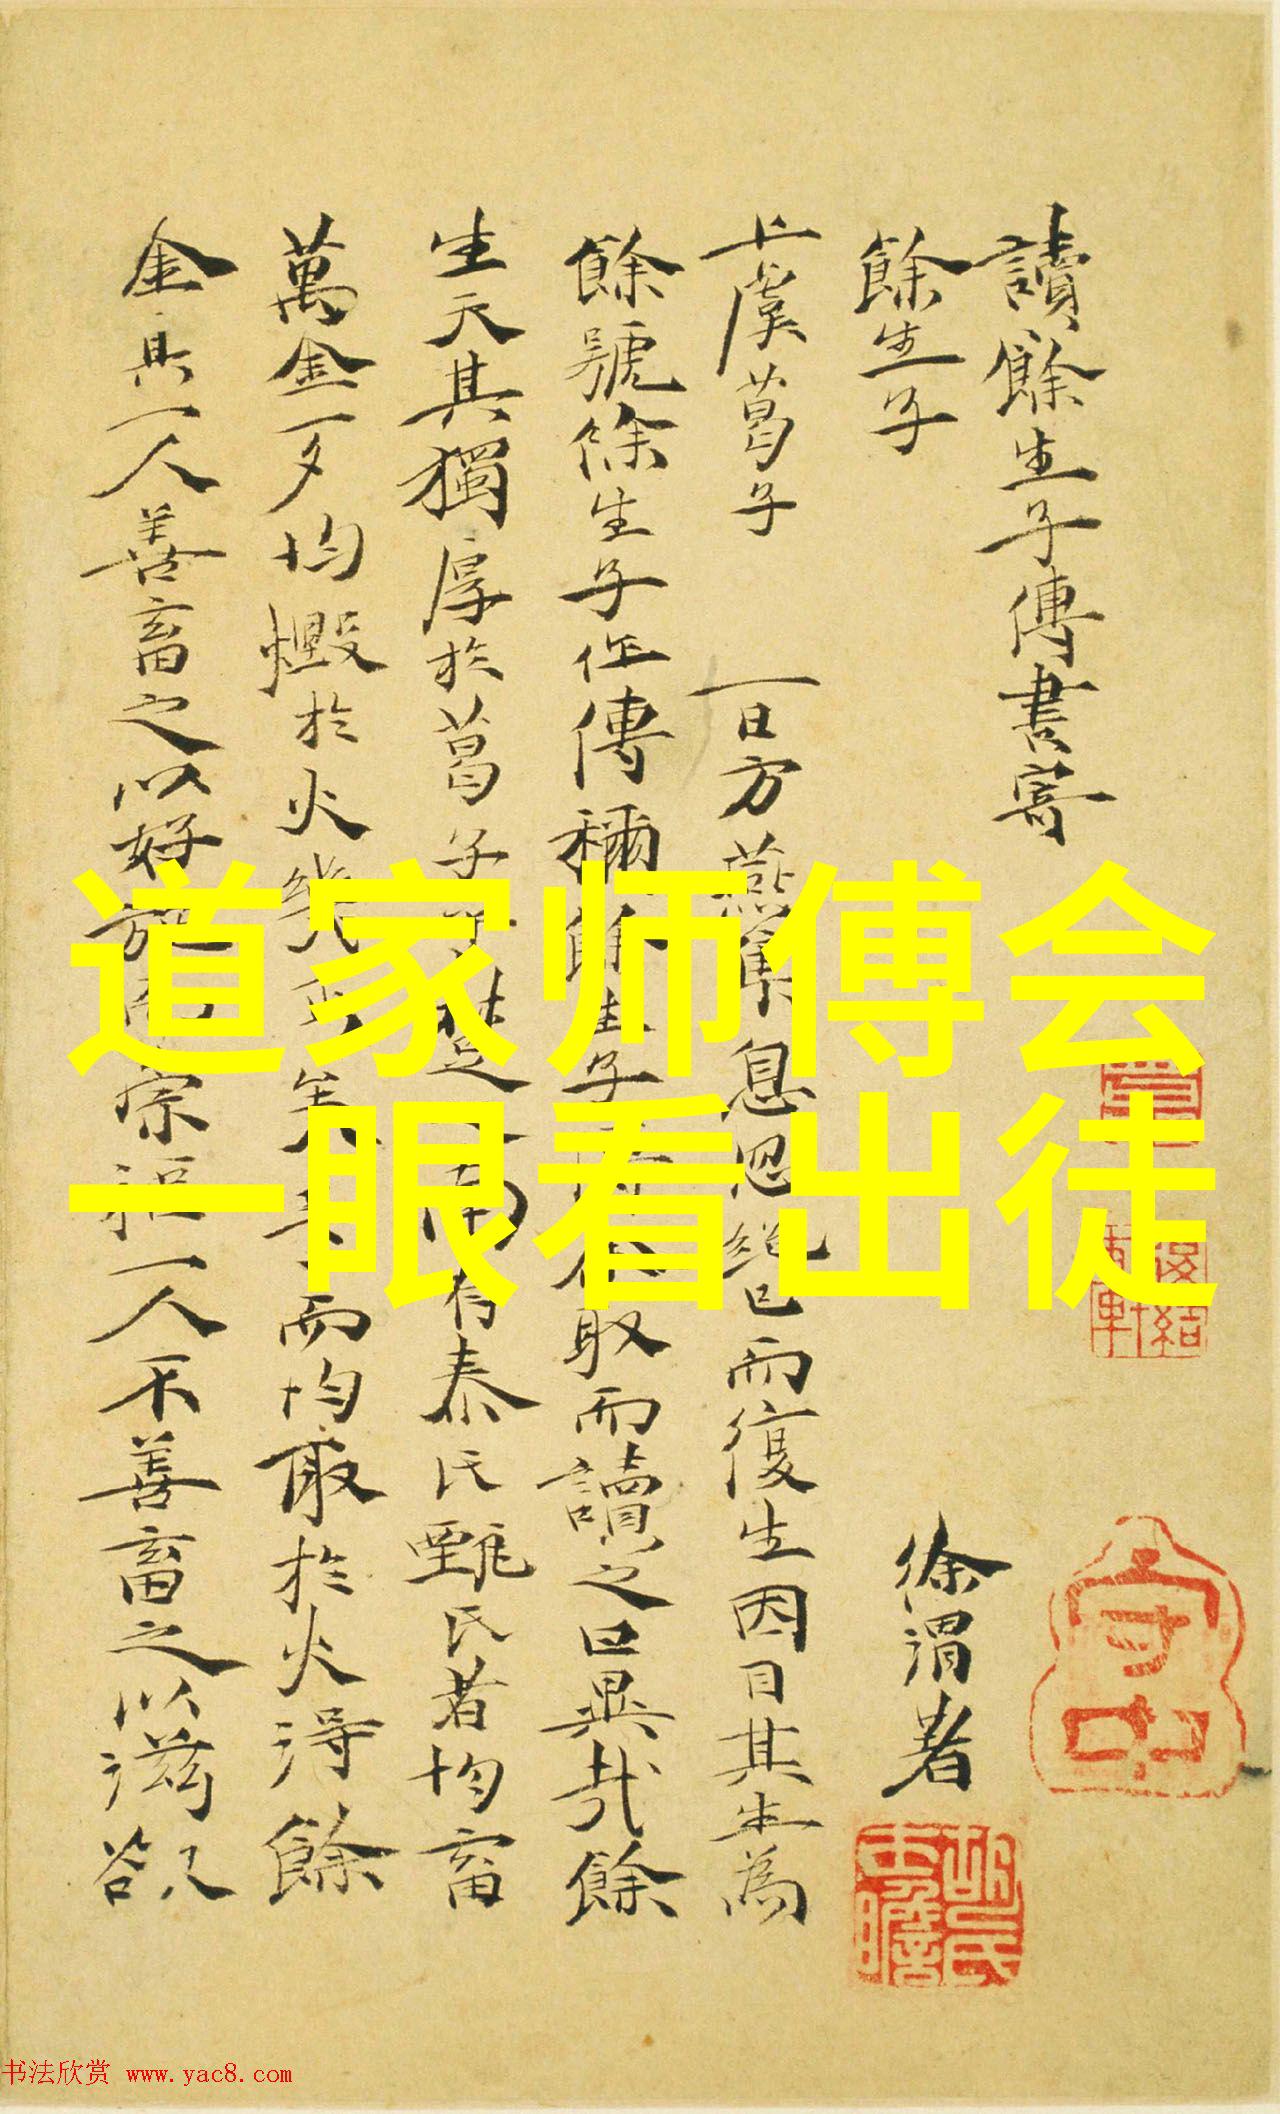 讀餘生子傳書寄
餘生子
徐渭著
上虞葛子 一日方燕集息忽絕已而復生因目其生為
餘號餘生子任傳稱餘生子取而讀之曰異哉餘
生天其獨厚於葛子有秦氏甄氏者均畜
萬金一夕均燬於火而均取於火得餘
金其一人善畜之以好宗一人不善畜之以滋欲
道家师傅会
一眼看出徒
书法欣赏 www.yac8.com